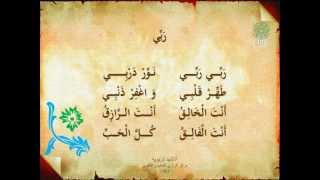 رَبِّي
رَبِّـي رَبِّـي نَـوِّرْ دَرْبِـــي
طَهِّـرْ قَلْبِـي وَ اغْفِـرْ ذَنْبِي
أَنْتَ الْخَالِقُ أَنْـتَ الرَّازِقُ
أَنْتَ الْفَالِـقُ كُـلَّ الْحَـبِّ